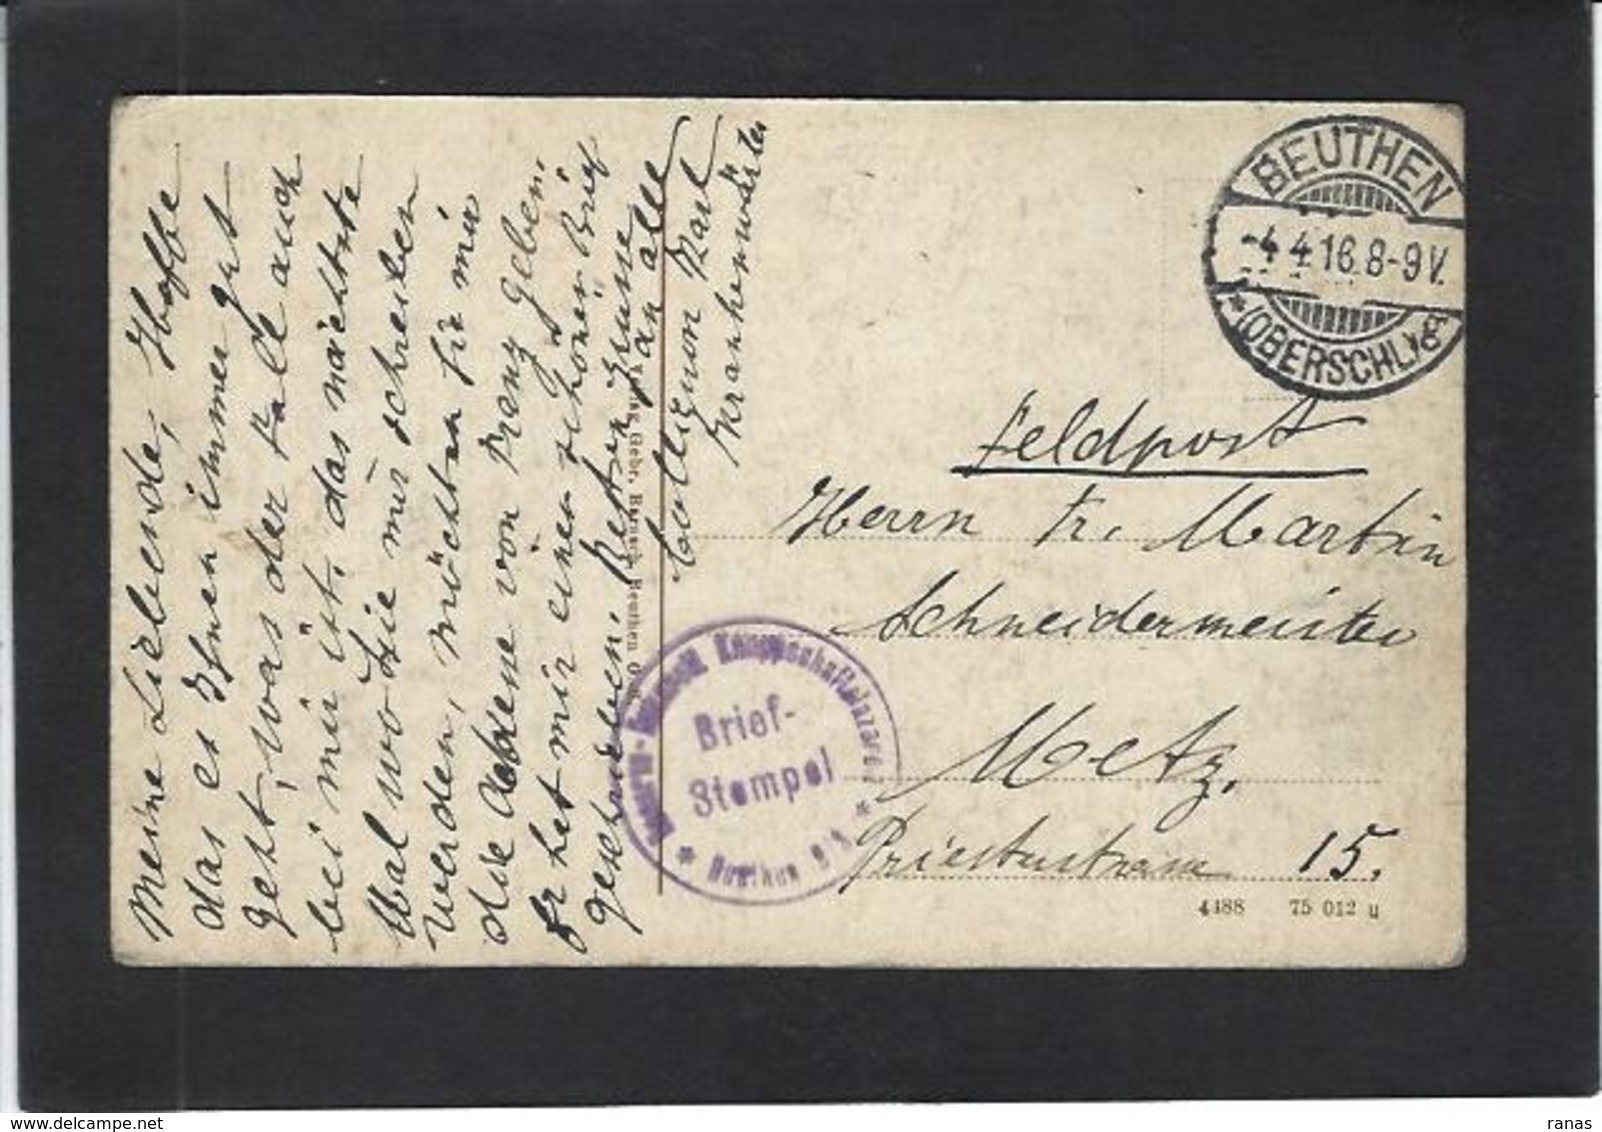 Meine Liebende, Hoffe
das es Ihnen immer gut
geht, was der Falle auch
bei mir ist. das nächste
Mal wo Sie mir schreiben
werden, möchten Sie mir
die Adresse von Franz geben.
Er hat mir einen schönen Brief
geschrieben. Besten Grüsse
an alle
Karl
Krankenwärter
Verlag Gebr. Beuthen
BEUTHEN
4.4.16.8-9V.
*(OBERSCHL.)
Feldpost
Herrn Fr. Martin
Schneidermeister
Metz.
15.
Knappschaftslazarett
Brief-
Stempel
* Beuthen O/S *
4488 75 012 u
ranas